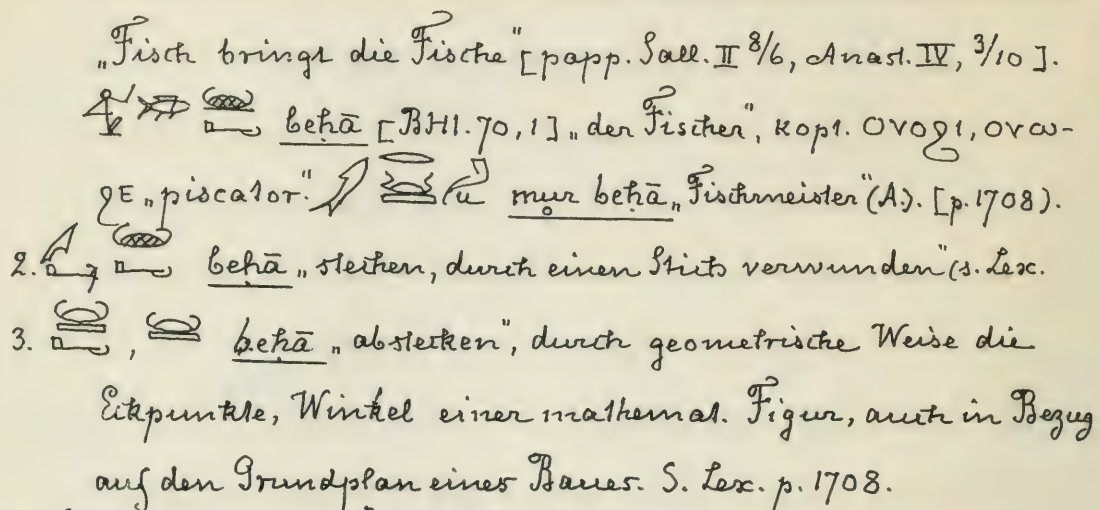 „Fisch bringt die Fische“ [papp. Sall. II 8/6, Anast. IV, 3/10 ].
beḥā [BHI. 70, 1] „der Fischer“, kopt. ⲟⲩⲟϩⲓ, ⲟⲩⲱ-
ϩⲉ „piscator.“ mur beḥā „Fischmeister“ (A). [p. 1708).
2. beḥā „stechen, durch einen Stich verwunden“ (s. Lex.
3. , beḥā „abstecken“, durch geometrische Weise die
Eckpunkte, Winkel einer mathemat. Figur, auch in Bezug
auf den Grundplan eines Baues. S. Lex. p. 1708.